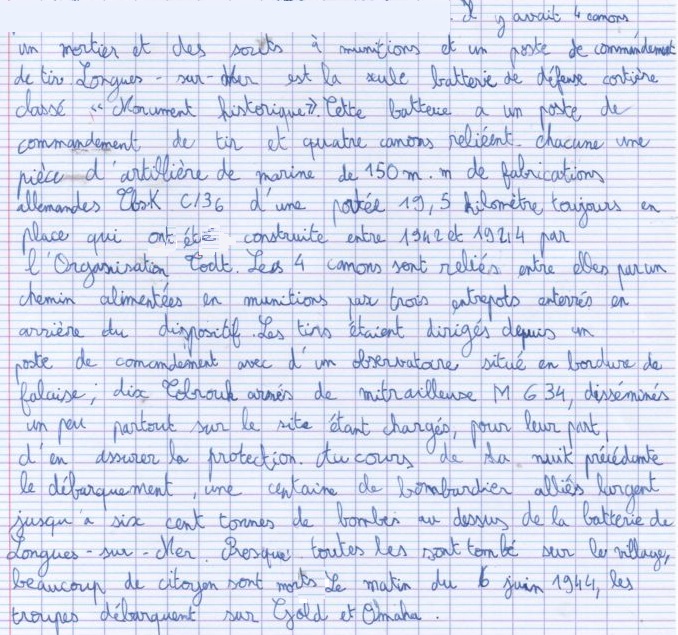 . Il y avait 4 canons
un mortier et des souts à munitions et un poste de commandement
de tir. Longues - sur - Mer est la seule batterie de défense cortière
classé " Monument historique". Cette batterie a un poste de
commandement de tir et quatre canons reliéent. chacune une
pièce d'artillière de marine de 150 m.m de fabrications
allemandes TbsK C/36 d'une portée 19,5 kilomètre toujours en
place qui ont été construite entre 1942 et 1944 par
l'Organisation Todt. Les 4 canons sont reliés entre elles par un
chemin alimentées en munitions par trois entrepots enterrés en
arrière du dispositif. Les tirs étaient dirigés depuis un
poste de comcandement avec d'un observatoire situé en bordure de
falaise ; dix Tobrouk armés de mitrailleuse M G 34, disséminés
un peu partout sur le site étant chargés, pour leur part,
d'en assurer la protection. Au cours de la nuit précédante
le débarquement, une centaine de bombardier alliés largent
jusqu'a six cent tonnes de bombes au dessus de la batterie de
Longues - sur - Mer. Presque toutes les sont tombé sur le village,
beaucoup de citoyen sont morts. Le matin du 6 juin 1944, les
troupes débarquent sur Gold et Omaha.